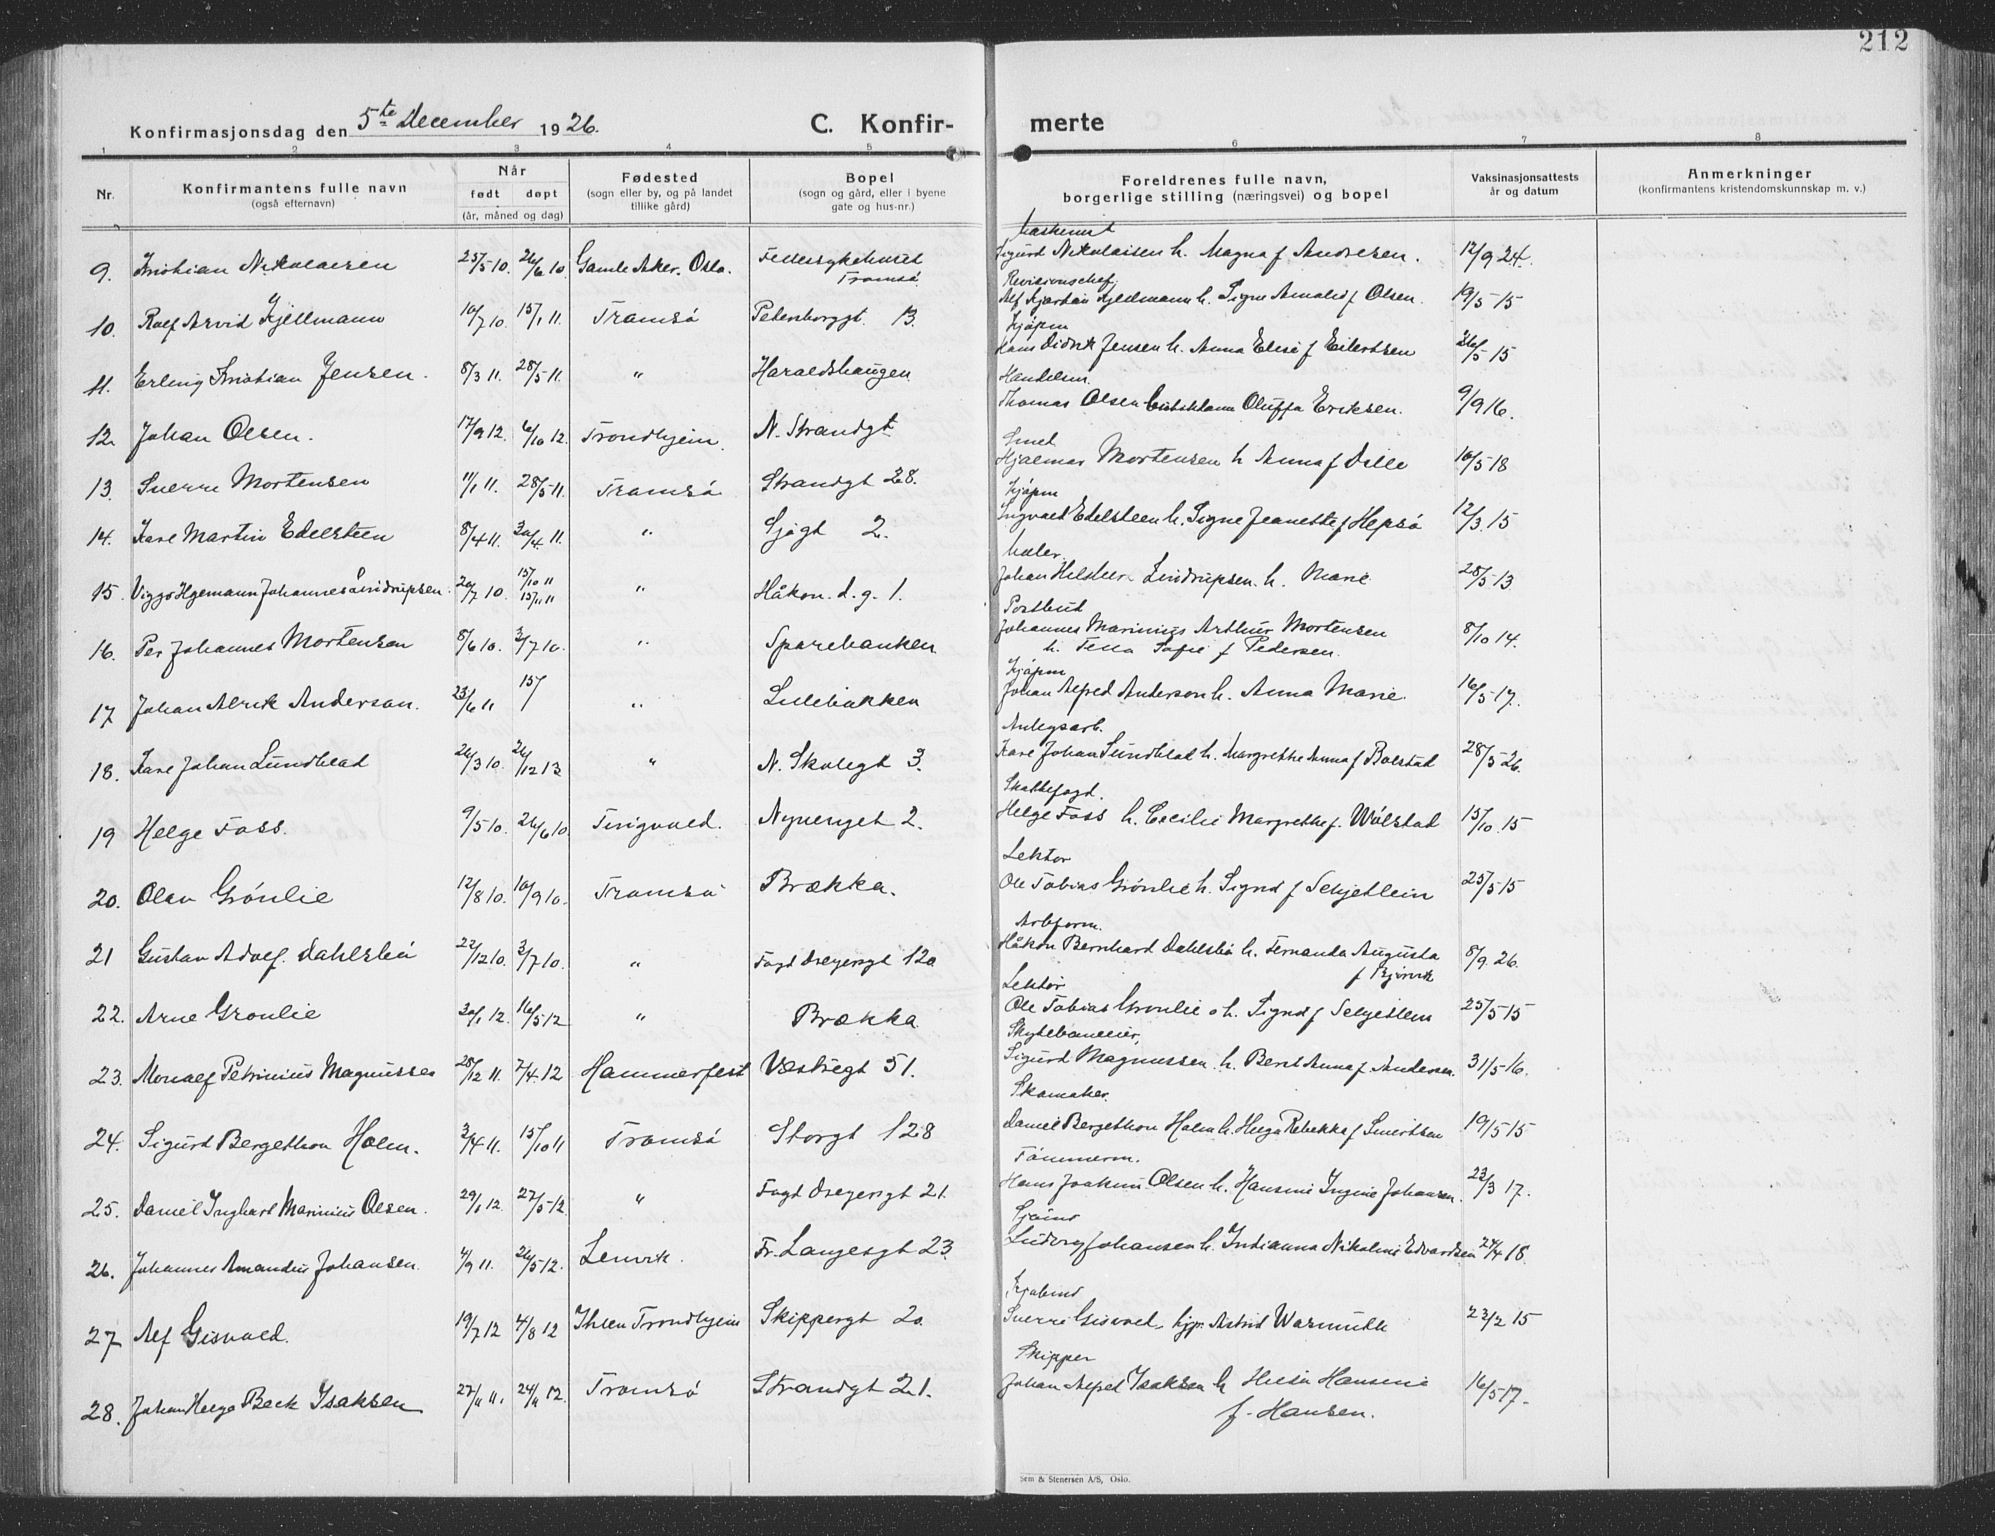 212
Konfirmasjonsdag den 5te December 1926.
C. Konfir-
merte
1 2 3 4 5 6 7 8
Nr.
Konfirmantens fulle navn
(også efternavn)
Når
født døpt
(år, måned og dag)
Fødested
(sogn eller by, og på landet
tillike gård)
Bopel
(sogn og gård, eller i byene
gate og hus-nr.)
Foreldrenes fulle navn,
borgerlige stilling (næringsvei) og bopel
Vaksinasjonsattests
år og datum
Anmerkninger
(konfirmantens kristendomskunnskap m. v.)
Maskinist
9. Kristian Nikolaisen 25/5 10. 26/6 10. Gamle Aker. Oslo. Fellessykehuset Tromsø Sigurd Nikolaisen h. Magna f Andresen. 12/9 24.
Revisionschef
10. Rolf Arvid Kjellmann 10/7 10. 15/1 11. Tromsø Petersborggt. 13. Alf Kjartan Kjellmann h. Signe Amalie f Olsen. 19/5 15
Kjøpm
11. Erling Kristian Jensen. 8/3 11. 28/5 11. " Haraldshaugen Hans Didrik Jensen h. Anna Elise f Eilertsen 26/5 15
Handelsm.
12. Johan Olsen. 17/9 12. 6/10 12. Trondhjem. N. Strandgt Thomas Olsen Oluffa Eriksen. 9/9 16.
Smed
13. Sverre Mortensen 11/1 11. 28/5 11. Tromsø Strandgt 28. Hjalmar Mortensen h Anna f Dille 10/5 18
Kjøpm
14. Kare Martin Edelsteen 8/4 11. 30/4 11. " Sjøgt 2. Ingvald Edelsteen h. Signe Jeanette f Hepsø 12/3. 15
Maler.
15. Viggo Hgemann Johannes Lindrupsen. 20/7 10. 15/10 11 15/11 11 " Håkon. d. g. 1. Johan Lindrupsen. h. Marie 28/5 13
Postbud
16. Per Johannes Mortensen 8/6 10. 3/7 10. " Sparebanken Johannes Marinius Arthur Mortensen 8/10 14.
h. Tella Sofie f Pedersen.
Kjøpm
17 Johan Alrik Anderson. 23/6 11 15/ " Lillebakken Johan Alfred Anderson h. Anna Marie 16/5 17.
Anlegsarb.
18. Kare Johan Lundblad 26/3 10. 26/12 13 " N. Skolegt 3. Kare Johan Lundblad h. Margrethe Anna f Bolstad 28/5 26.
Skattefogd.
19 Helge Foss. 9/5 10. 26/6 10 Tingvold. Nyvenget 2. Helge Foss h. Cecilie Margrethe f. Wølstad 15/10. 15
Lektor
20. Olav Grønlie 12/8 10. 10/9 10. Tromsø Brækka. Ole Tobias Grønlie h. Signd f Selyetlein 25/5 15
Arbform.
21 Gustav Adolf. Dahlsbø 22/12 10. 3/7 10. " Fogd Dreyersgt 12a Håkon Bernhard Dahlsbø h. Fernanda Augusta 8/9. 26.
f Bjørvik
Lektor
22. Arne Grønlie 30/1 12. 16/5 12 " Brækka Ole Tobias Grønlie o h. Signd f Selyetlein 25/5 15
23. Monalf Petrinius Magnussen 28/12 11. 7/4 12 Hammerfest Vestregt 51. Sigurd Magnussen. h. Beret Anna f Andersen. 31/5 16.
Skomaker.
24. Sigurd Bergethon Holm. 3/4 11. 15/10 11 Tromsø Storgt 128 Daniel Bergethon Holm h. Helga Rebekka f Sivertsen 19/5 15
Tømmerm.
25. Daniel Inghart Marinius Olsen. 29/1 12. 27/5 12. " Fogd Dreyersgt 21. Hans Joakim Olsen h. Hansine Ingine Johansen. 22/3 17.
Sjømd
26. Johannes Amandus Johansen. 4/9 11. 26/5 12. Lenvik. Fr. Langesgt 23. Ludvig Johansen h. Indianna Nikoline Edvardsen 24/4 18.
27 Alf Gisvold. 19/7 12 4/8 12 Ihlen Trondhjem Skippergt 20. Sverre Gisvold, hjp. Astrid Warmuth 23/2 15
Skipper
28. Johan Helge Beck Isaksen 27/11 11. 24/11 12. Tromsø Strandgt 21. Johan Alfred Isaksen h Hulda Hansine 16/5 17.
f. Hansen.
Sem & Stenersen A/S, Oslo.